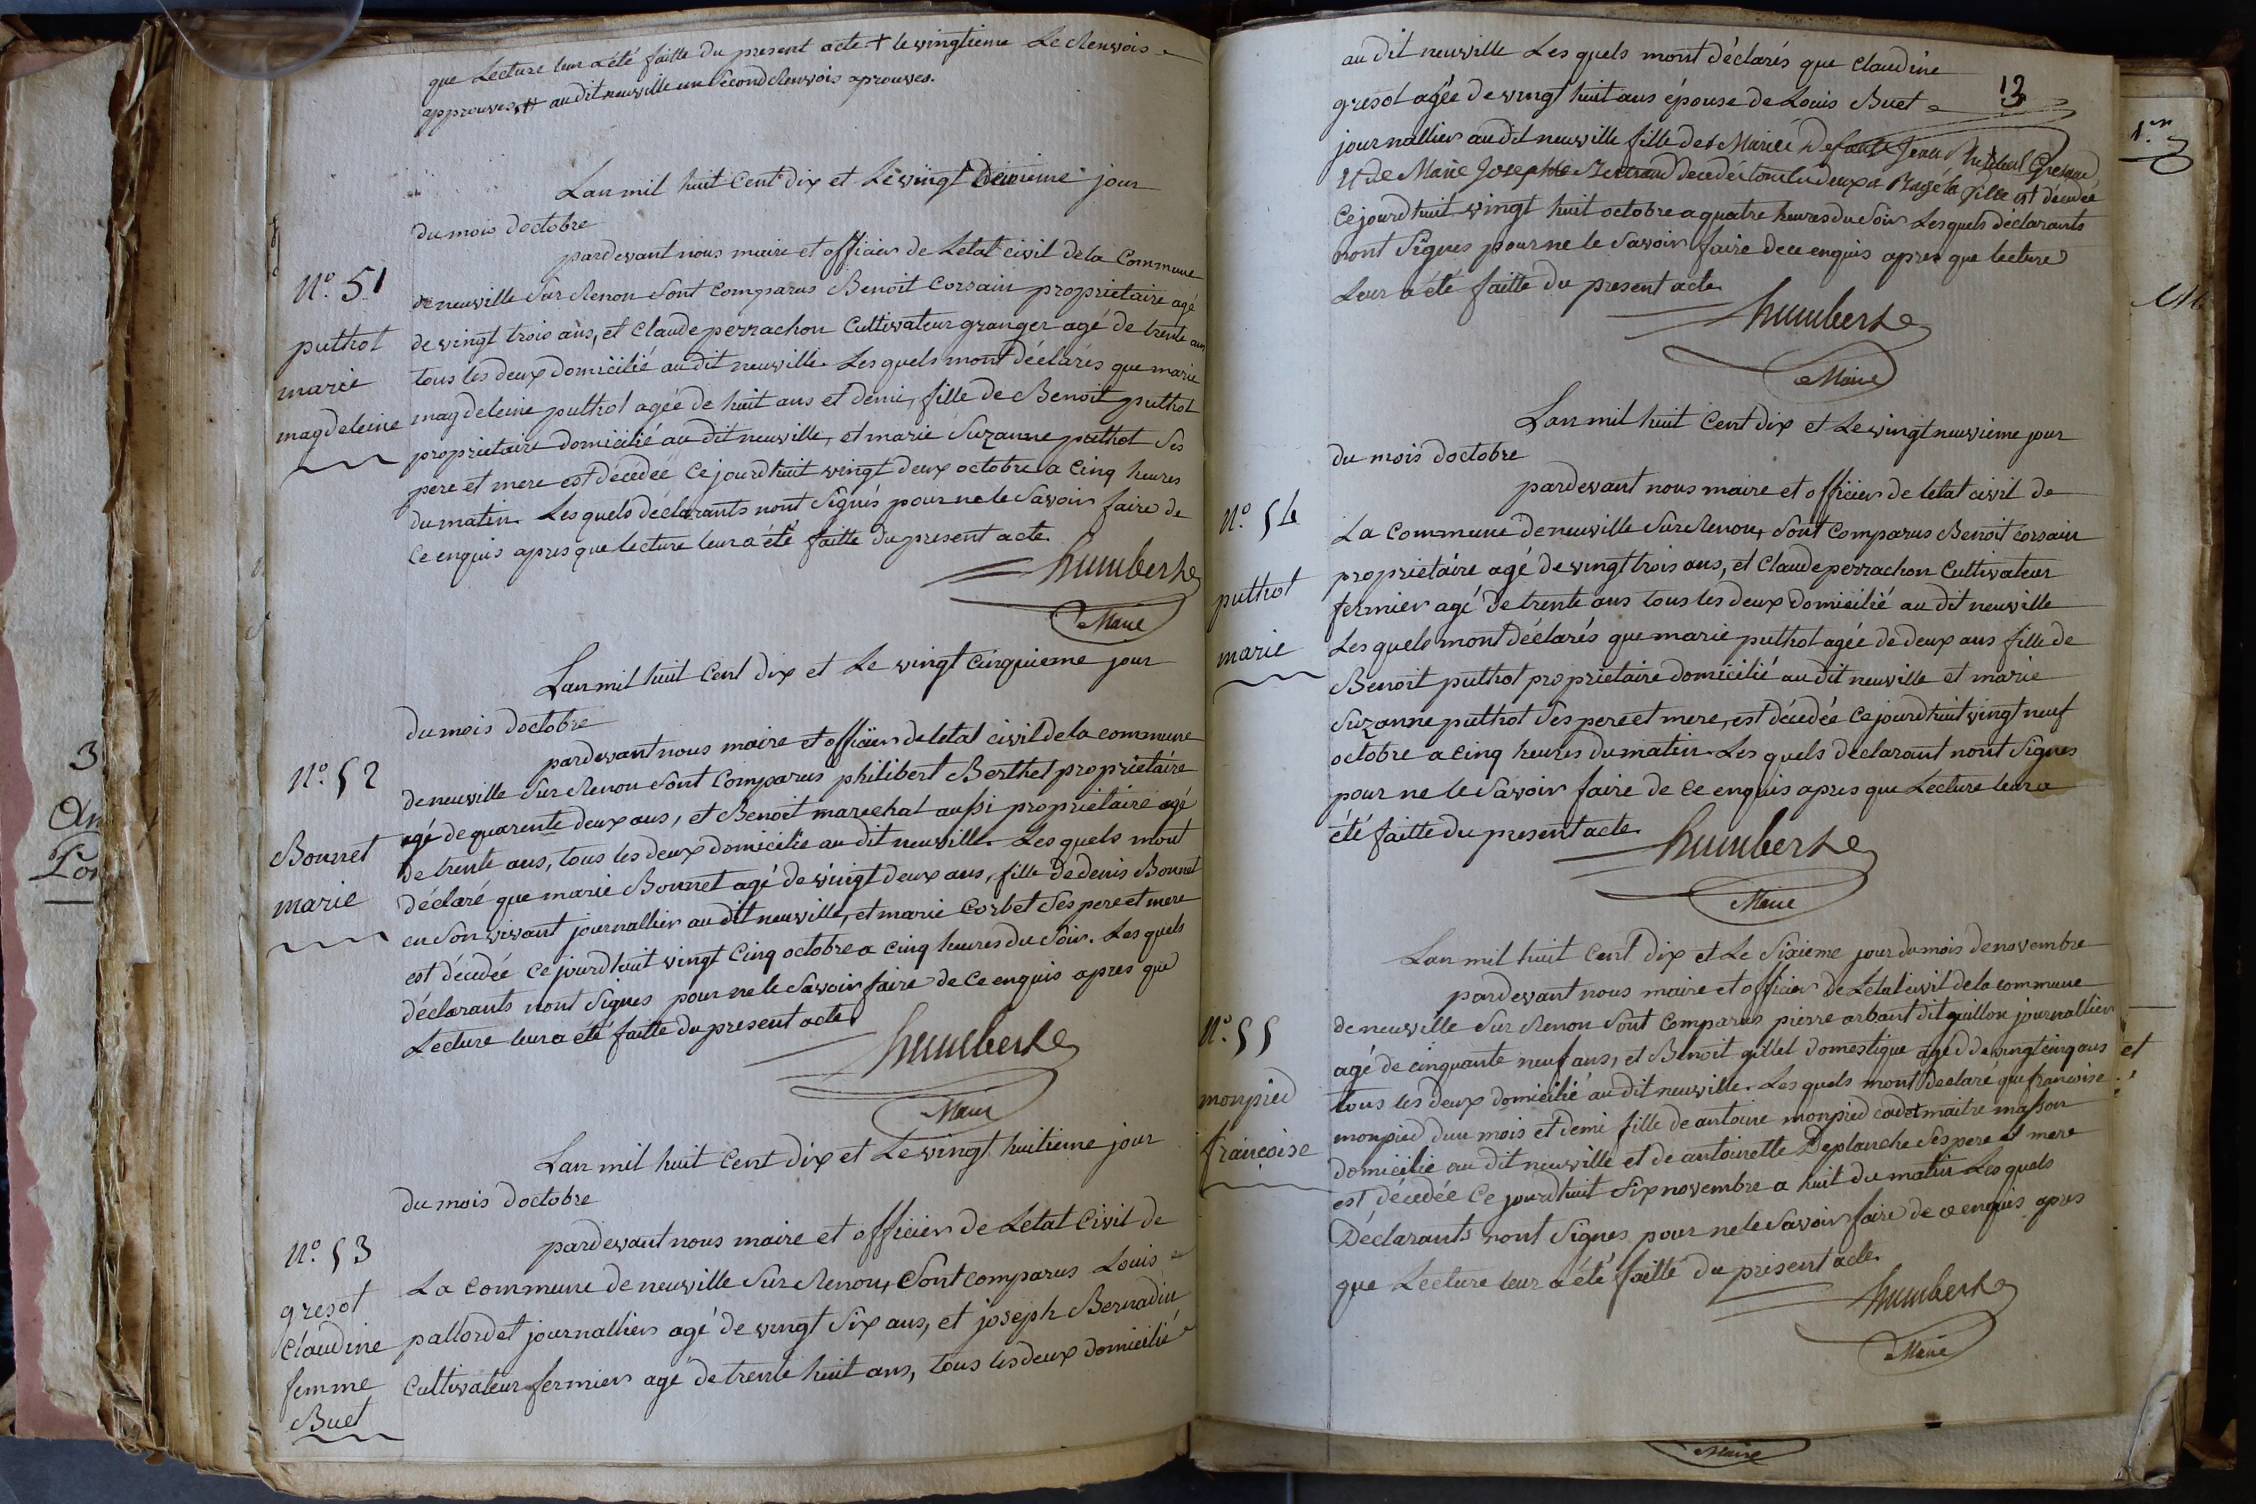 que Lecture leur a été faitte du present acte + le vingtieme Le Renvois
approuves ++ au dit neuville un second Renvois aprouves.
Lan mil huit Cent Dix et Le vingt Deuxieme jour
du mois doctobre
pardevant nous maire et officier de Letat civil de la Commune
N.o 51
de neuville Sur Renon Sont Comparus Benoit Corsain proprietaire agé
puthot
de vingt trois ans, et Claude perrachon Cultivateur granger agé de trente ans
marie
tous les deux Domicilié au dit neuville. Les quels mont déclarés que marie
magdeleine
magdeleine puthot agée de huit ans et demi, fille de Benoit puthot
proprietaire domicilié au dit neuville, et marie Suzanne puthot Ses
pere et mere est décedée Ce jourdhuit vingt deux octobre a Cinq heures
du matin. Les quels déclarants nont Signés pour ne le Savoir faire de
Ce enquis apres que lecture leur a été faitte du present acte.
humbert
Maire
Lan mil huit Cent dix et Le vingt Cinquieme jour
du mois doctobre
pardevant nous maire et officier de letat civil de la commune
N.o 52
de neuville Sur Renon Sont Comparus philibert Berthet proprietaire
agé de quarente deux ans, et Benoit marechal aussi proprietaire agé
Bonnet
de trente ans, tous les deux domicilié au dit neuville. Les quels mont
marie
déclaré que marie Bonnet agé de vingt deux ans, fille de denis Bonnet
en Son vivant journallier au dit neuville, et marie Corbet Ses pere et mere
est décedée Ce jourdhuit vingt Cinq octobre a Cinq heures du Soir. Les quels
déclarants nont Signes pour ne le Savoir faire de Ce enquis apres que
Lecture leur a été faitte du present acte.
humbert
Maire
Lan mil huit Cent Dix et Le vingt huitieme jour
du mois doctobre
pardevant nous maire et officier de Letat Civil de
N.o 53
La Commune de neuville Sur Renon, Sont comparus Louis
gresot
pallordet journallier agé de vingt Six ans, et joseph Bernadin
Claudine
Cultivateur fermier agé de trente huit ans, tous les deux domicilié
femme
Buet
13
au dit neuville Les quels mont déclarés que Claudine
gresot agée de vingt huit ans épouse de Louis Buet
journallier au dit neuville fille des Mariés Jean
et de Marie Josephte Bertrand Decedés tous les deux a la fille est décedée
Ce jourdhuit vingt huit octobre a quatre heures du Soir Les quels déclarants
nont Signes pour ne le Savoir faire de ce enquis apres que lecture
Leur a été faitte du present acte.
humbert
Maire
Lan mil huit Cent Dix et Le vingt neuvieme jour
du mois doctobre
pardevant nous maire et officier de letat civil de
N.o 54
La Commune de neuville Sur Renon, Sont Comparus Benoit corsain
proprietaire agé de vingt trois ans, et Claude perrachon Cultivateur
puthot
fermier agé de trente ans tous les deux Domicilié au dit neuville
marie
Les quels mont déclarés que marie puthot agée de deux ans fille de
Benoit puthot proprietaire domicilié au dit neuville et marie
Suzanne puthot Ses pere et mere, est décedée Ce jourdhuit vingt neuf
octobre a Cinq heures du matin. Les quels déclarant nont Signes
pour ne le Savoir faire de Ce enquis apres que Lecture leur a
été faitte du present acte.
humbert
Maire
Lan mil huit Cent Dix et Le Sixieme jour du mois de novembre
pardevant nous maire et officier de Letat civil de la commune
N.o 55
de neuville Sur Renon Sont Comparus pierre arbant dit guillon journallier
agé de cinquante neuf ans, et Benoit gillet domestique agé de vingt cinq ans
monpied
tous les deux domicilié au dit neuville. Les quels mont declaré que francoise
françoise
monpied dun mois et demi fille de antoine monpied cadet maitre masson
domicilié au dit neuville et de antoinette Deplanche Ses pere et mere
est décedée Ce jourdhuit Six novembre a huit du matin Les quels
Déclarants nont Signes pour ne le Savoir faire de ce enquis apres
que Lecture leur a été faitte du present acte.
humbert
Maire
et
Maire